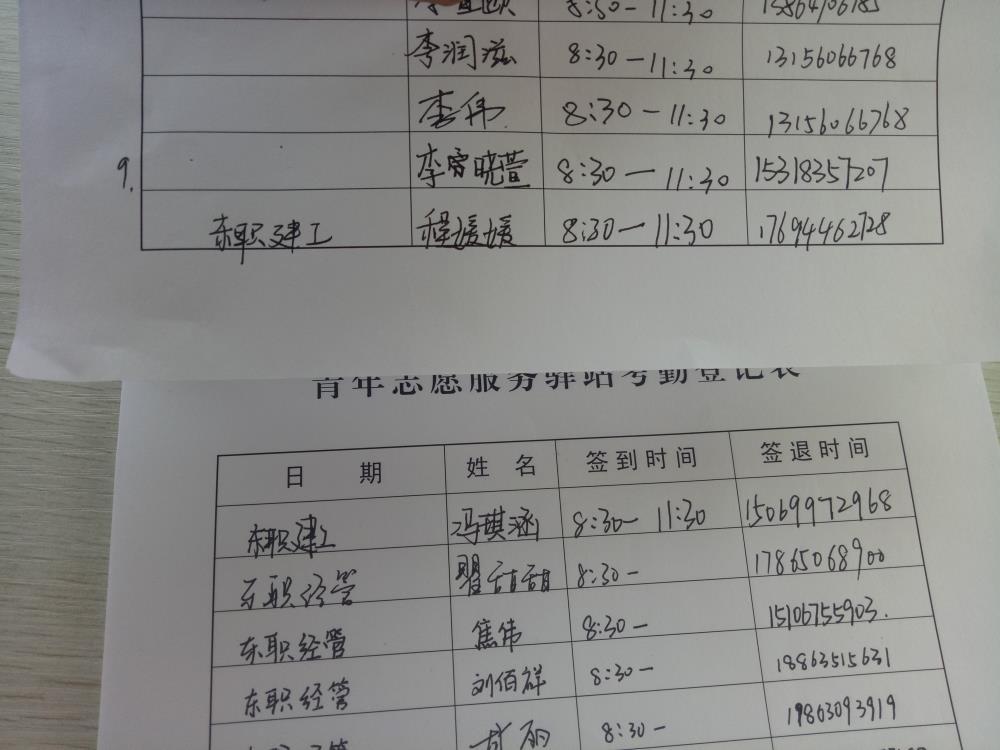 8:30-11:30
李润滋 8:30-11:30 13156066768
李伟 8:30-11:30 13156066768
9. 8:30-11:30 15318357207
东职建工 程媛媛 8:30-11:30 17694462728
青年志愿服务驿站考勤登记表
日 期 姓 名 签到时间 签退时间
东职建工 冯琪涵 8:30-11:30 15069972968
东职经管 翟甜甜 8:30- 17865068900
东职经管 焦伟 8:30- 15106755903.
东职经管 刘佰祥 8:30- 18863515631
8:30- 19863093919